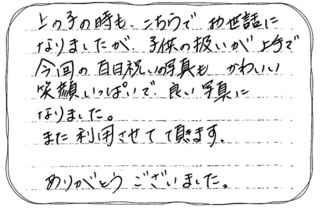 上の子の時も、こちらで、お世話に
なりましたが、子供の扱いが上手で
今回の百日祝いの写真も かわいい
笑顔いっぱいで、良い写真に
なりました。
また利用させて頂きます。
ありがとうございました。